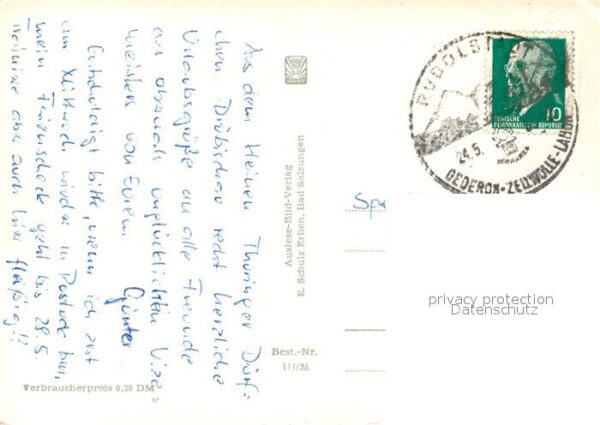 Aus dem kleinen Thüringer Dörf-
chen Dröbischau recht herzliche
Urlaubsgrüße an alle Freunde
vom abermals unglücklichen Vize-
meister von Eurem
Günter
Entschuldigt bitte, wenn ich erst
am Mittwoch wieder in Rostock bin,
mein Ferienscheck geht bis 28.5.
trainiere aber auch hier fleißig!!
Verbraucherpreis 0,20 DM
Auslese-Bild-Verlag
E. Schulz Erben, Bad Salzungen
Best.-Nr.
111/36
RUDOLSTADT
24.5.
DEDERON-ZELLWOLLE-
DEUTSCHE
DEMOKRATISCHE REPUBLIK
10
privacy protection
Datenschutz